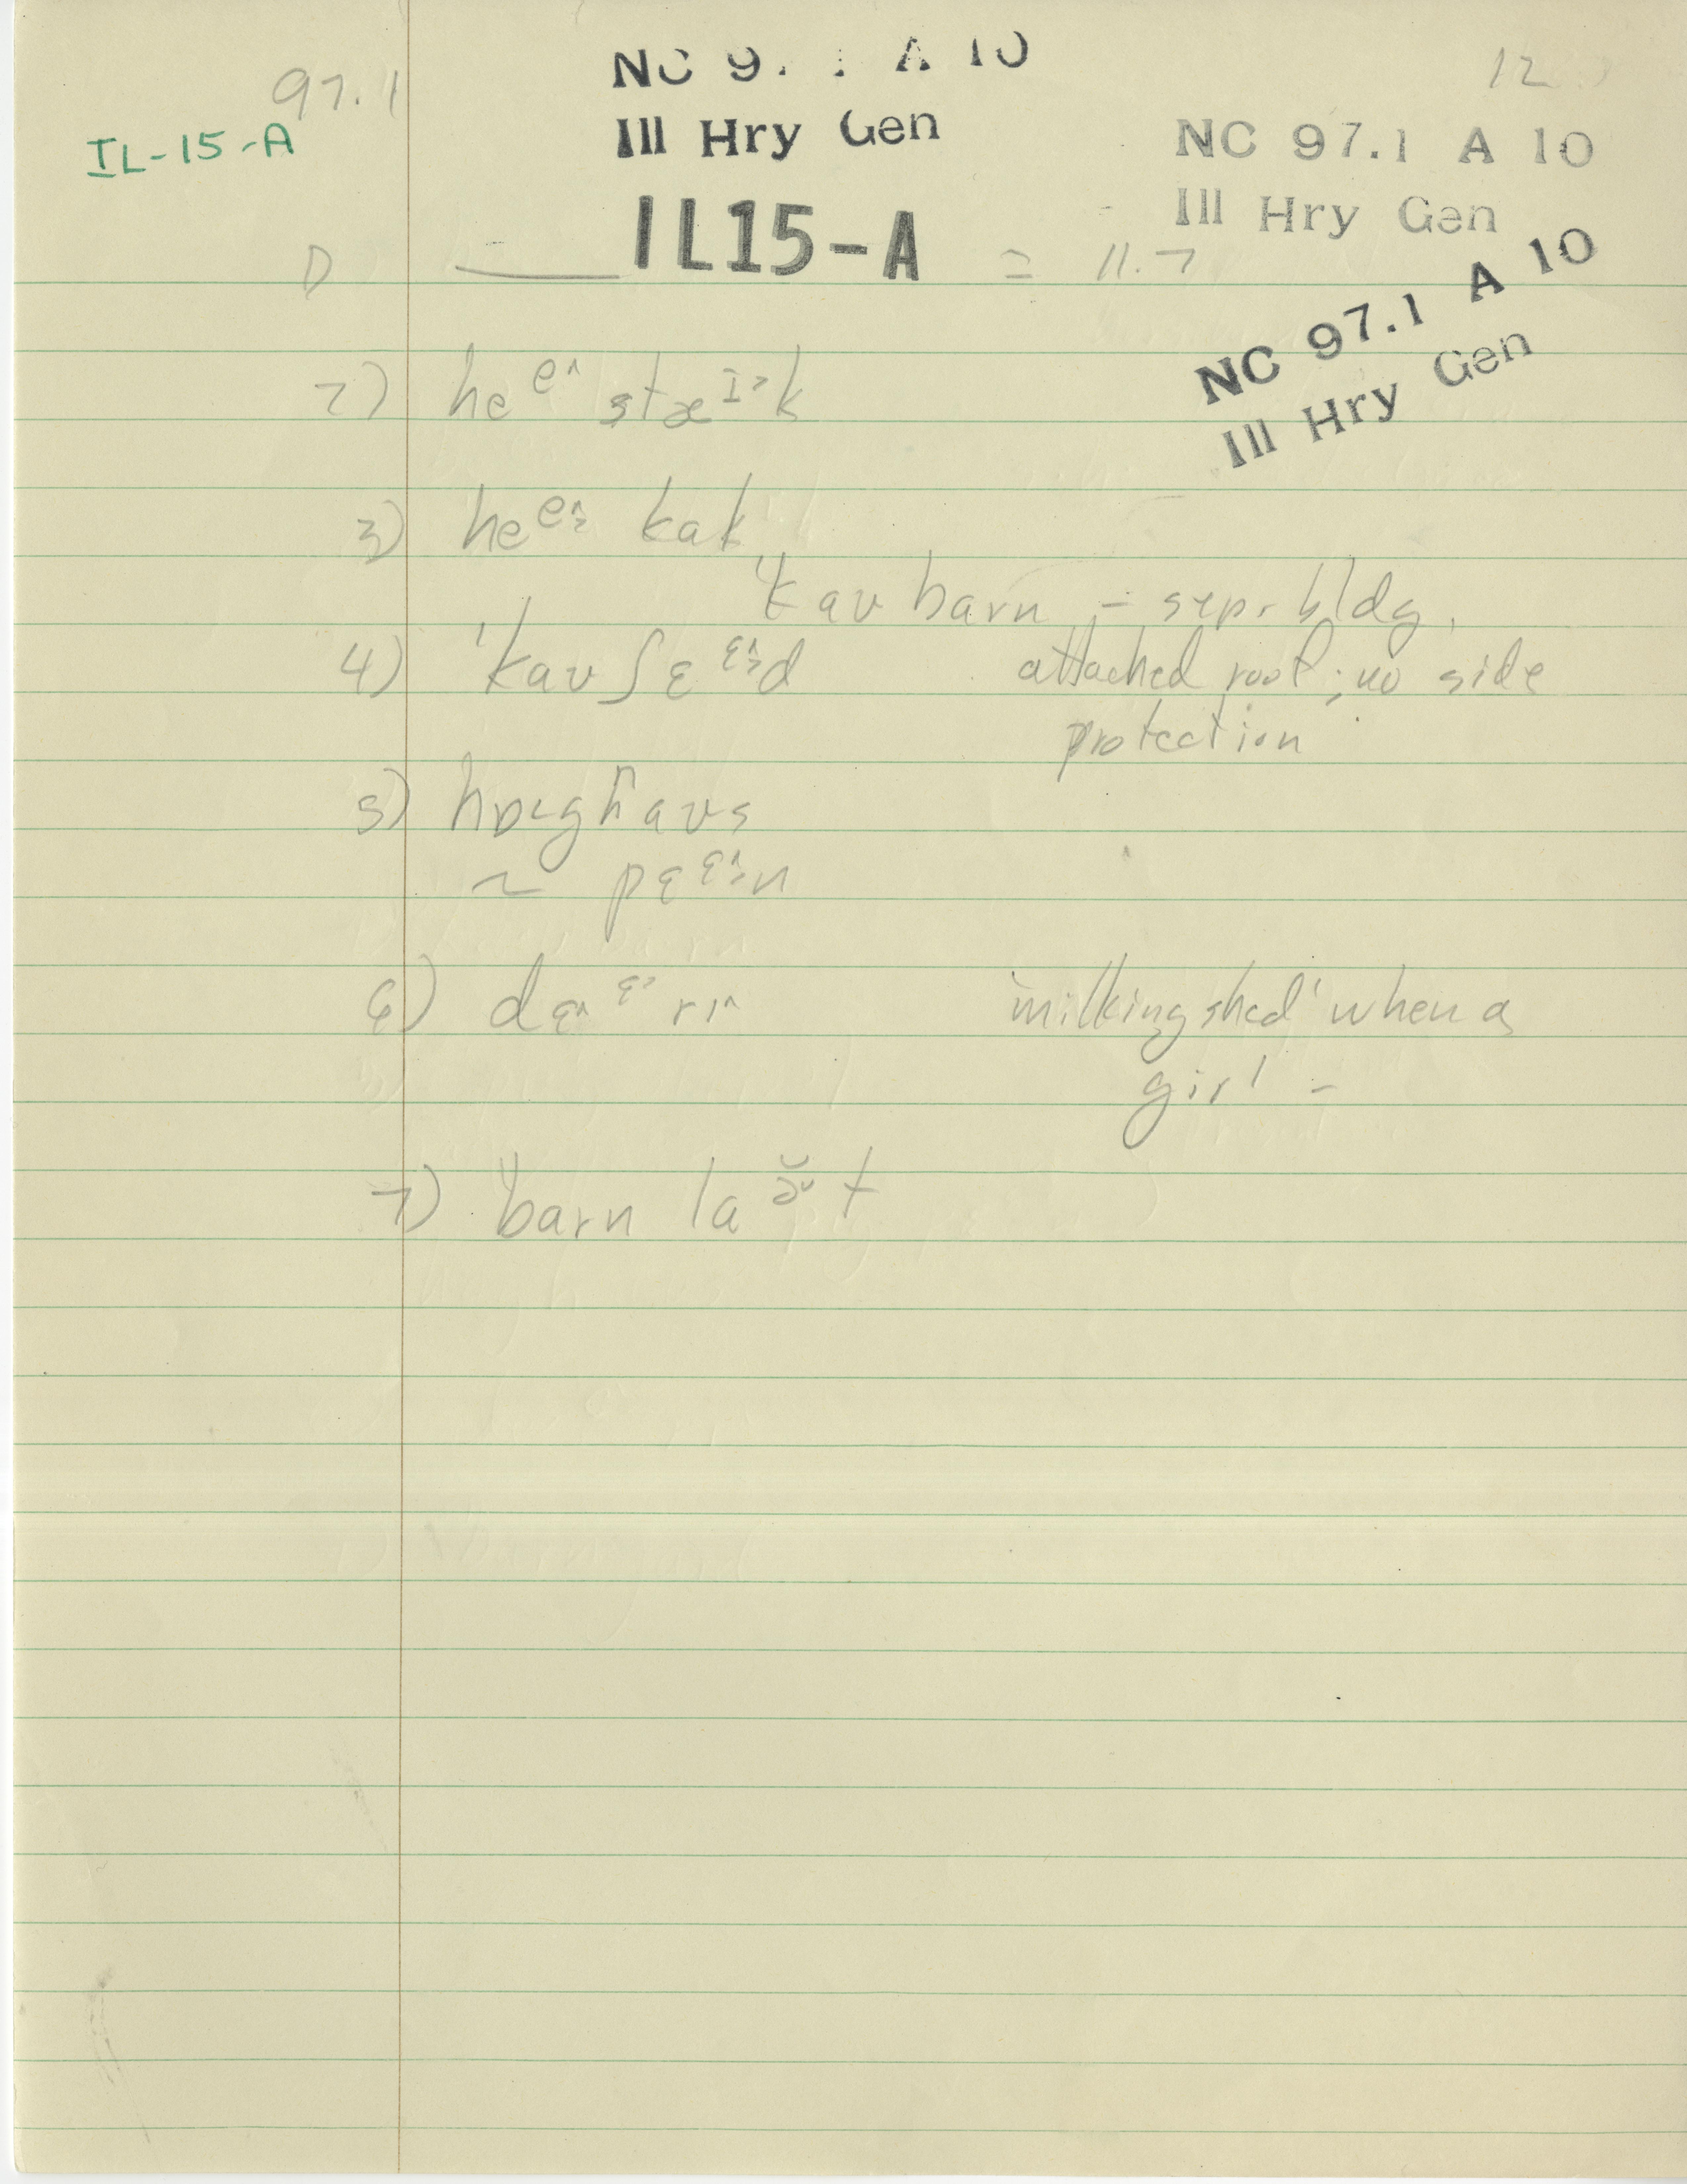 97.1
IL-15-A
NC 9. : A 10
Ill Hry Gen
12
NC 97.1 A 10
Ill Hry Gen
IL15-A = 11.7
NC 97.1 A 10
Ill Hry Gen
2) heᵉ˄ stæᶦ˃k
3) heᵉ˄˃ kak
ˈkaʊ barn – sep. bldg.
4) ˈkaʊ ʃɛᵋ˄˃d attached roof; no side
protection
5) hɒ˂gɦaʊs
~ pɛᵋ˄˃n
6) dɛ˄ᵋ˃ rɪ˄ 'milking shed' when a
girl –
7) barn laə̆˅t